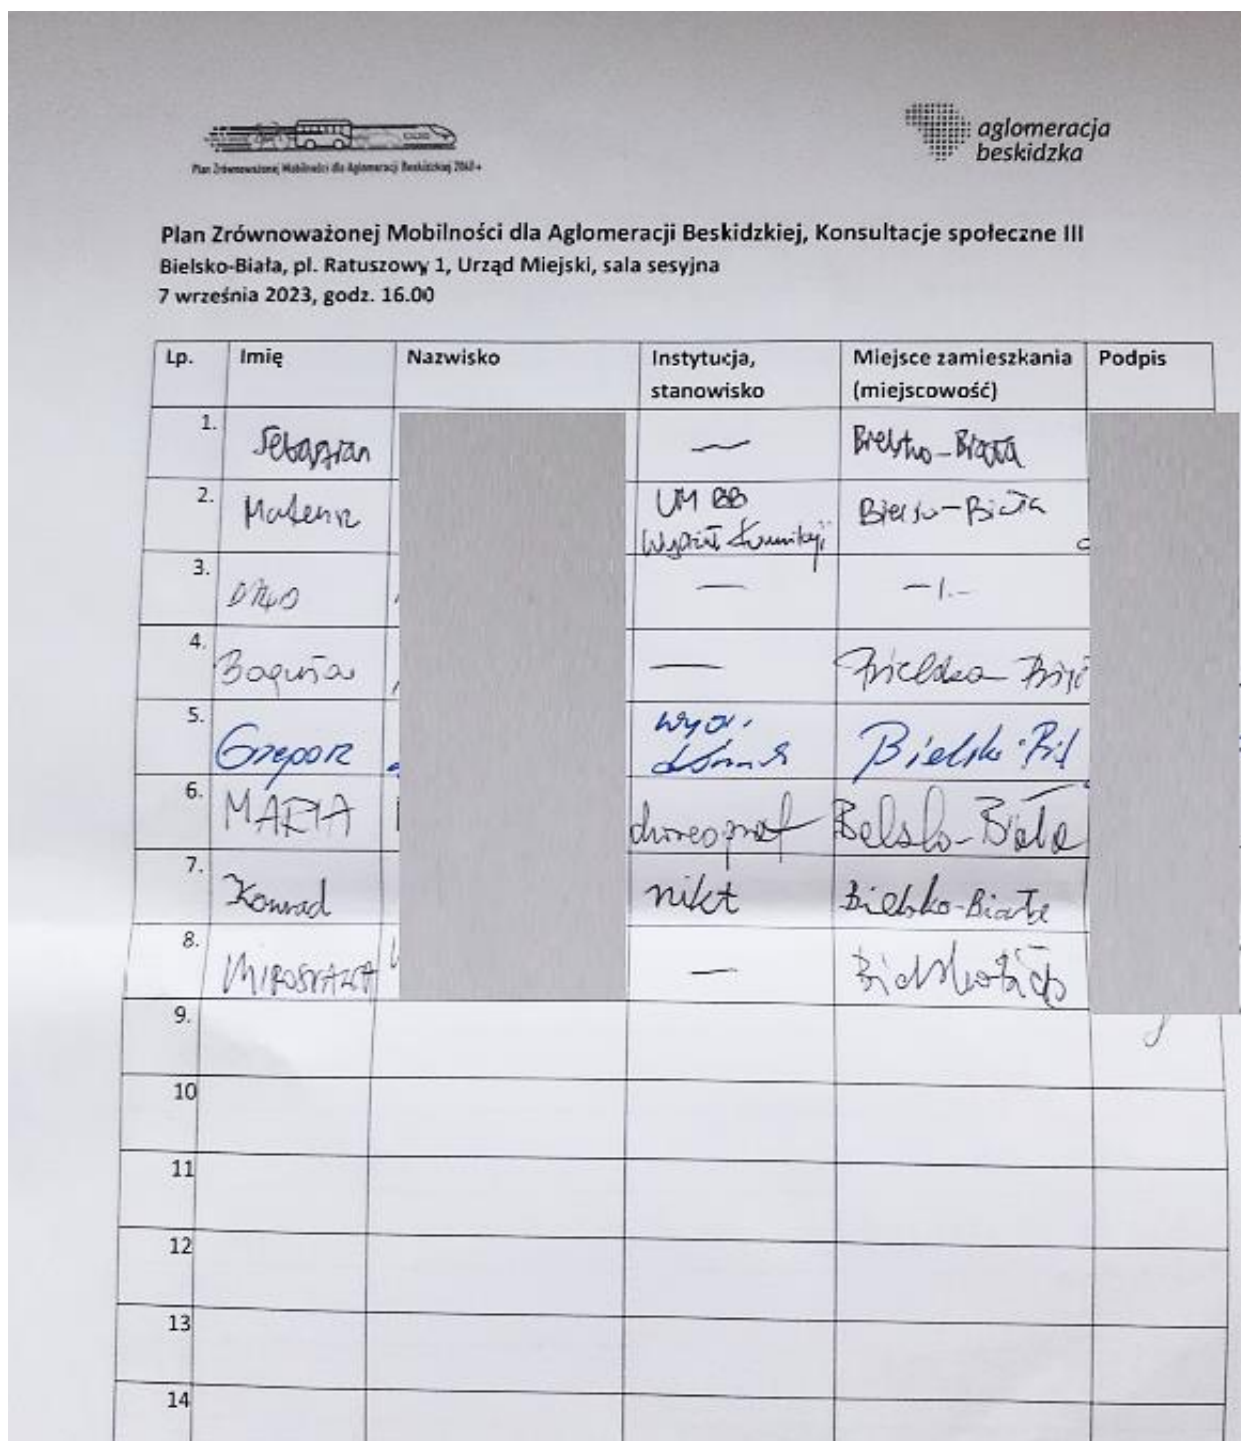 Plan Zrównoważonej Mobilności dla Aglomeracji Beskidzkiej 2040+
aglomeracja
beskidzka
Plan Zrównoważonej Mobilności dla Aglomeracji Beskidzkiej, Konsultacje społeczne III
Bielsko-Biała, pl. Ratuszowy 1, Urząd Miejski, sala sesyjna
7 września 2023, godz. 16.00
Lp. Imię Nazwisko Instytucja, stanowisko Miejsce zamieszkania (miejscowość) Podpis
1. Sebastian — Bielsko-Biała
2. Mateusz UM BB Bielsko-Biała
Wydział Komunikacji
3. — -||-
4. Bogusia — Bielsko-
5. Grzegorz Bielsko-
6. MARIA choreograf Bielsko-Biała
7. Konrad nikt Bielsko-Biała
8. MIROSŁAWA — Bielsko-Biała
9.
10
11
12
13
14